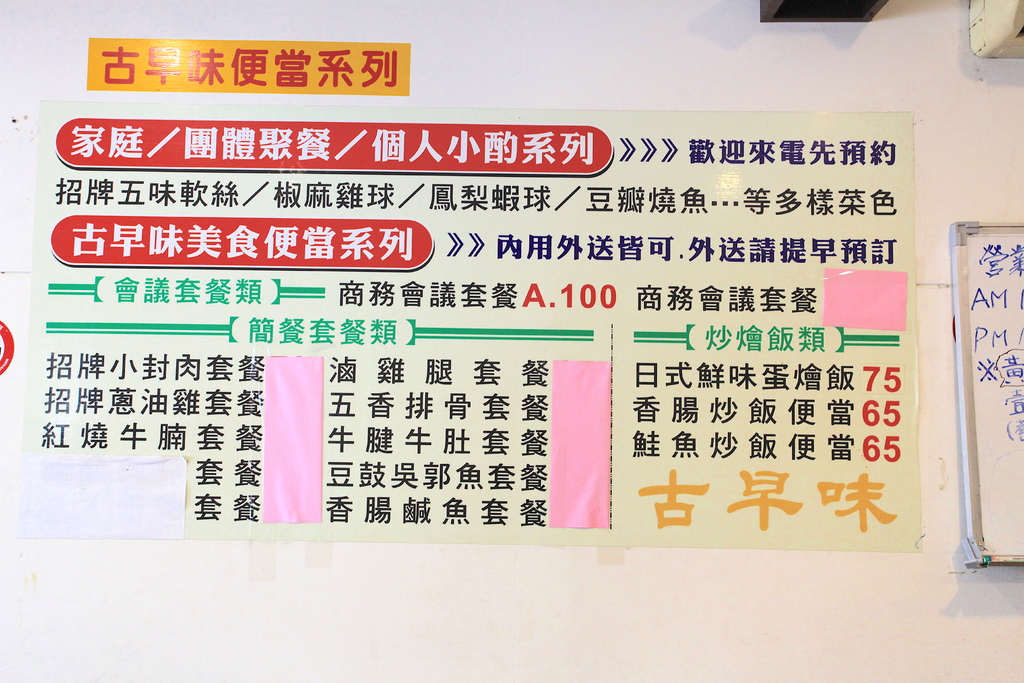 古早味便當系列
家庭／團體聚餐／個人小酌系列 》》》歡迎來電先預約
招牌五味軟絲／椒麻雞球／鳳梨蝦球／豆瓣燒魚…等多樣菜色
古早味美食便當系列 》》內用外送皆可.外送請提早預訂
【會議套餐類】 商務會議套餐A.100 商務會議套餐
【簡餐套餐類】
招牌小封肉套餐
招牌蔥油雞套餐
紅燒牛腩套餐
套餐
套餐
滷雞腿套餐
五香排骨套餐
牛腱牛肚套餐
豆鼓吳郭魚套餐
香腸鹹魚套餐
【炒燴飯類】
日式鮮味蛋燴飯75
香腸炒飯便當65
鮭魚炒飯便當65
古早味
營業
AM
PM
※黃